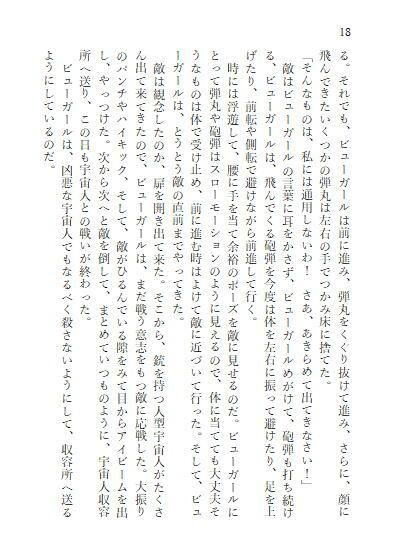 18
る。それでも、ビューガールは前に進み、弾丸をくぐり抜けて進み、さらに、顔に
飛んできたいくつかの弾丸は左右の手でつかみ床に捨てた。
「そんなものは、私には通用しないわ! さあ、あきらめて出てきなさい!」
敵はビューガールの言葉に耳をかさず、ビューガールめがけて、砲弾も打ち続け
る、ビューガールは、飛んでくる砲弾を今度は体を左右に振って避けたり、足を上
げたり、前転や側転で避けながら前進して行く。
時には浮遊して、腰に手を当て余裕のポーズを敵に見せるのだ。ビューガールに
とって弾丸や砲弾はスローモーションのように見えるので、体に当てても大丈夫そ
うなものは体で受け止め、前に進む時はよけて敵に近づいて行った。そして、ビュ
ーガールは、とうとう敵の直前までやってきた。
敵は観念したのか、扉を開き出て来た。そこから、銃を持つ人型宇宙人がたくさ
ん出て来てきたので、ビューガールは、まだ戦う意志をもつ敵に応戦した。大振り
のパンチやハイキック、そして、敵がひるんでいる隙をみて目からアイビームを出
し、やっつけた。次から次へと敵を倒して、まとめていつものように、宇宙人収容
所へ送り、この日も宇宙人との戦いが終わった。
ビューガールは、凶悪な宇宙人でもなるべく殺さないようにして、収容所へ送る
ようにしているのだ。